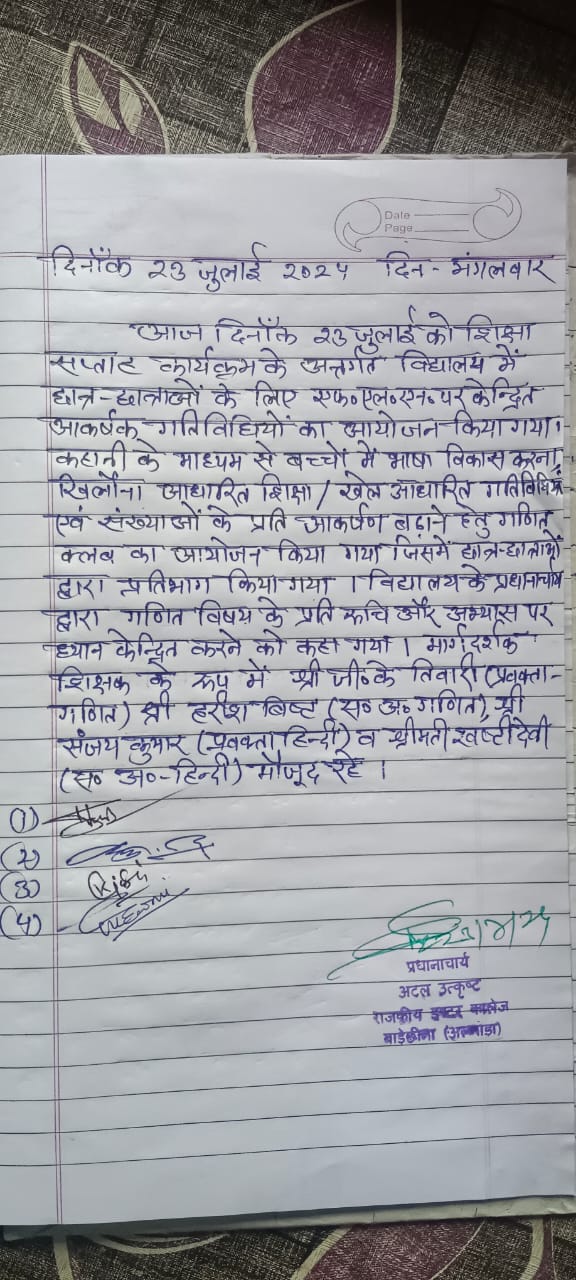 Date
Page
दिनाँक 23 जुलाई 2024 दिन - मंगलवार
आज दिनाँक 23 जुलाई को शिक्षा
सप्ताह कार्यक्रम के अन्तर्गत विद्यालय में
छात्र-छात्राओं के लिए एफ०एल०एन० पर केन्द्रित
आकर्षक गतिविधियों का आयोजन किया गया।
कहानी के माध्यम से बच्चों में भाषा विकास करना,
खिलौना आधारित शिक्षा / खेल आधारित गतिविधियाँ
एवं संख्याओं के प्रति आकर्षण बढ़ाने हेतु गणित
क्लब का आयोजन किया गया जिसमें छात्र-छात्राओं
द्वारा प्रतिभाग किया गया । विद्यालय के प्रधानाचार्य
द्वारा गणित विषय के प्रति रूचि और अभ्यास पर
ध्यान केन्द्रित करने को कहा गया । मार्गदर्शक
शिक्षक के रूप में श्री जी०के तिवारी (प्रवक्ता-
गणित) श्री हरीश बिष्ट (स० अ० गणित), श्री
संजय कुमार (प्रवक्ता हिन्दी) व श्रीमती षष्टी देवी
(स० अ०-हिन्दी) मौजूद रहे ।
(1)
(2)
(3)
(4)
प्रधानाचार्य
अटल उत्कृष्ट
राजकीय इण्टर कालेज
बाड़ेछीना (अल्मोड़ा)